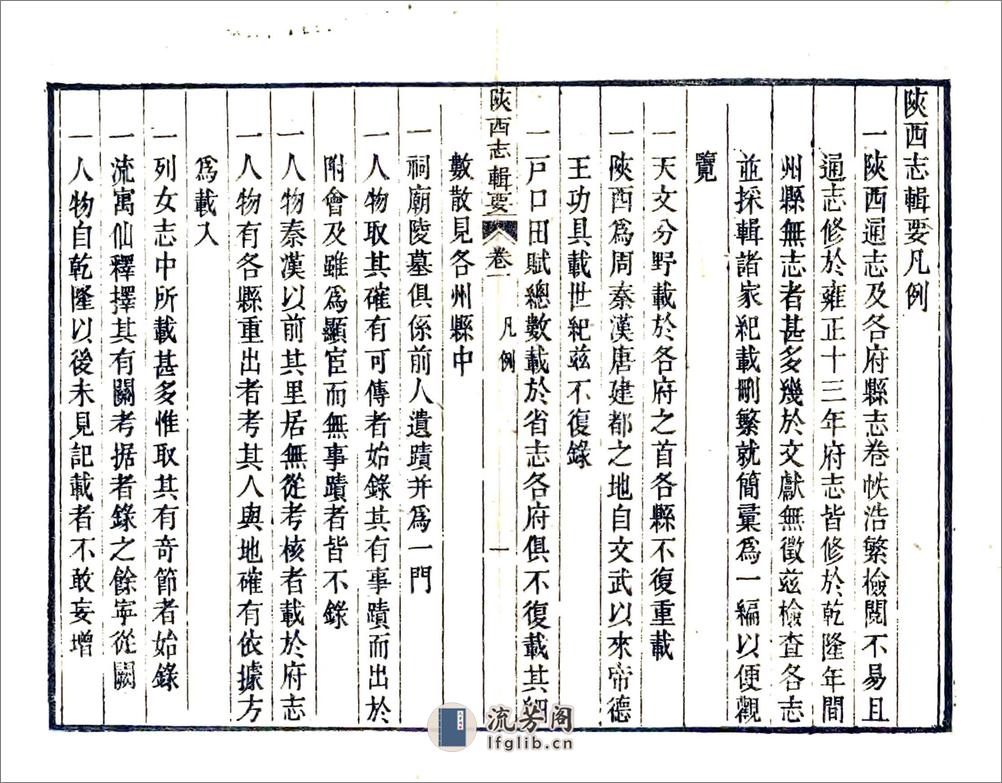 陝西志輯要凡例
一陝西通志及各府縣志卷帙浩繁檢閱不易且
通志修於雍正十三年府志皆修於乾隆年間
州縣無志者甚多幾於文獻無徵茲檢查各志
並採輯諸家紀載刪繁就簡彙爲一編以便觀
覽
一天文分野載於各府之首各縣不復重載
一陝西爲周秦漢唐建都之地自文武以來帝德
王功具載世紀茲不復錄
一戸口田賦總數載於省志各府俱不復載其細
陝西志輯要 卷一 凡例 一
數散見各州縣中
一祠廟陵墓俱係前人遺蹟并爲一門
一人物取其確有可傳者始錄其有事蹟而出於
附會及雖爲顯宦而無事蹟者皆不錄
一人物秦漢以前其里居無從考核者載於府志
一人物有各縣重出者考其人與地確有依據方
爲載入
一列女志中所載甚多惟取其有奇節者始錄
一流寓仙釋擇其有關考据者錄之餘寕從闕
一人物自乾隆以後未見記載者不敢妄增
流芳阁
lfglib.cn